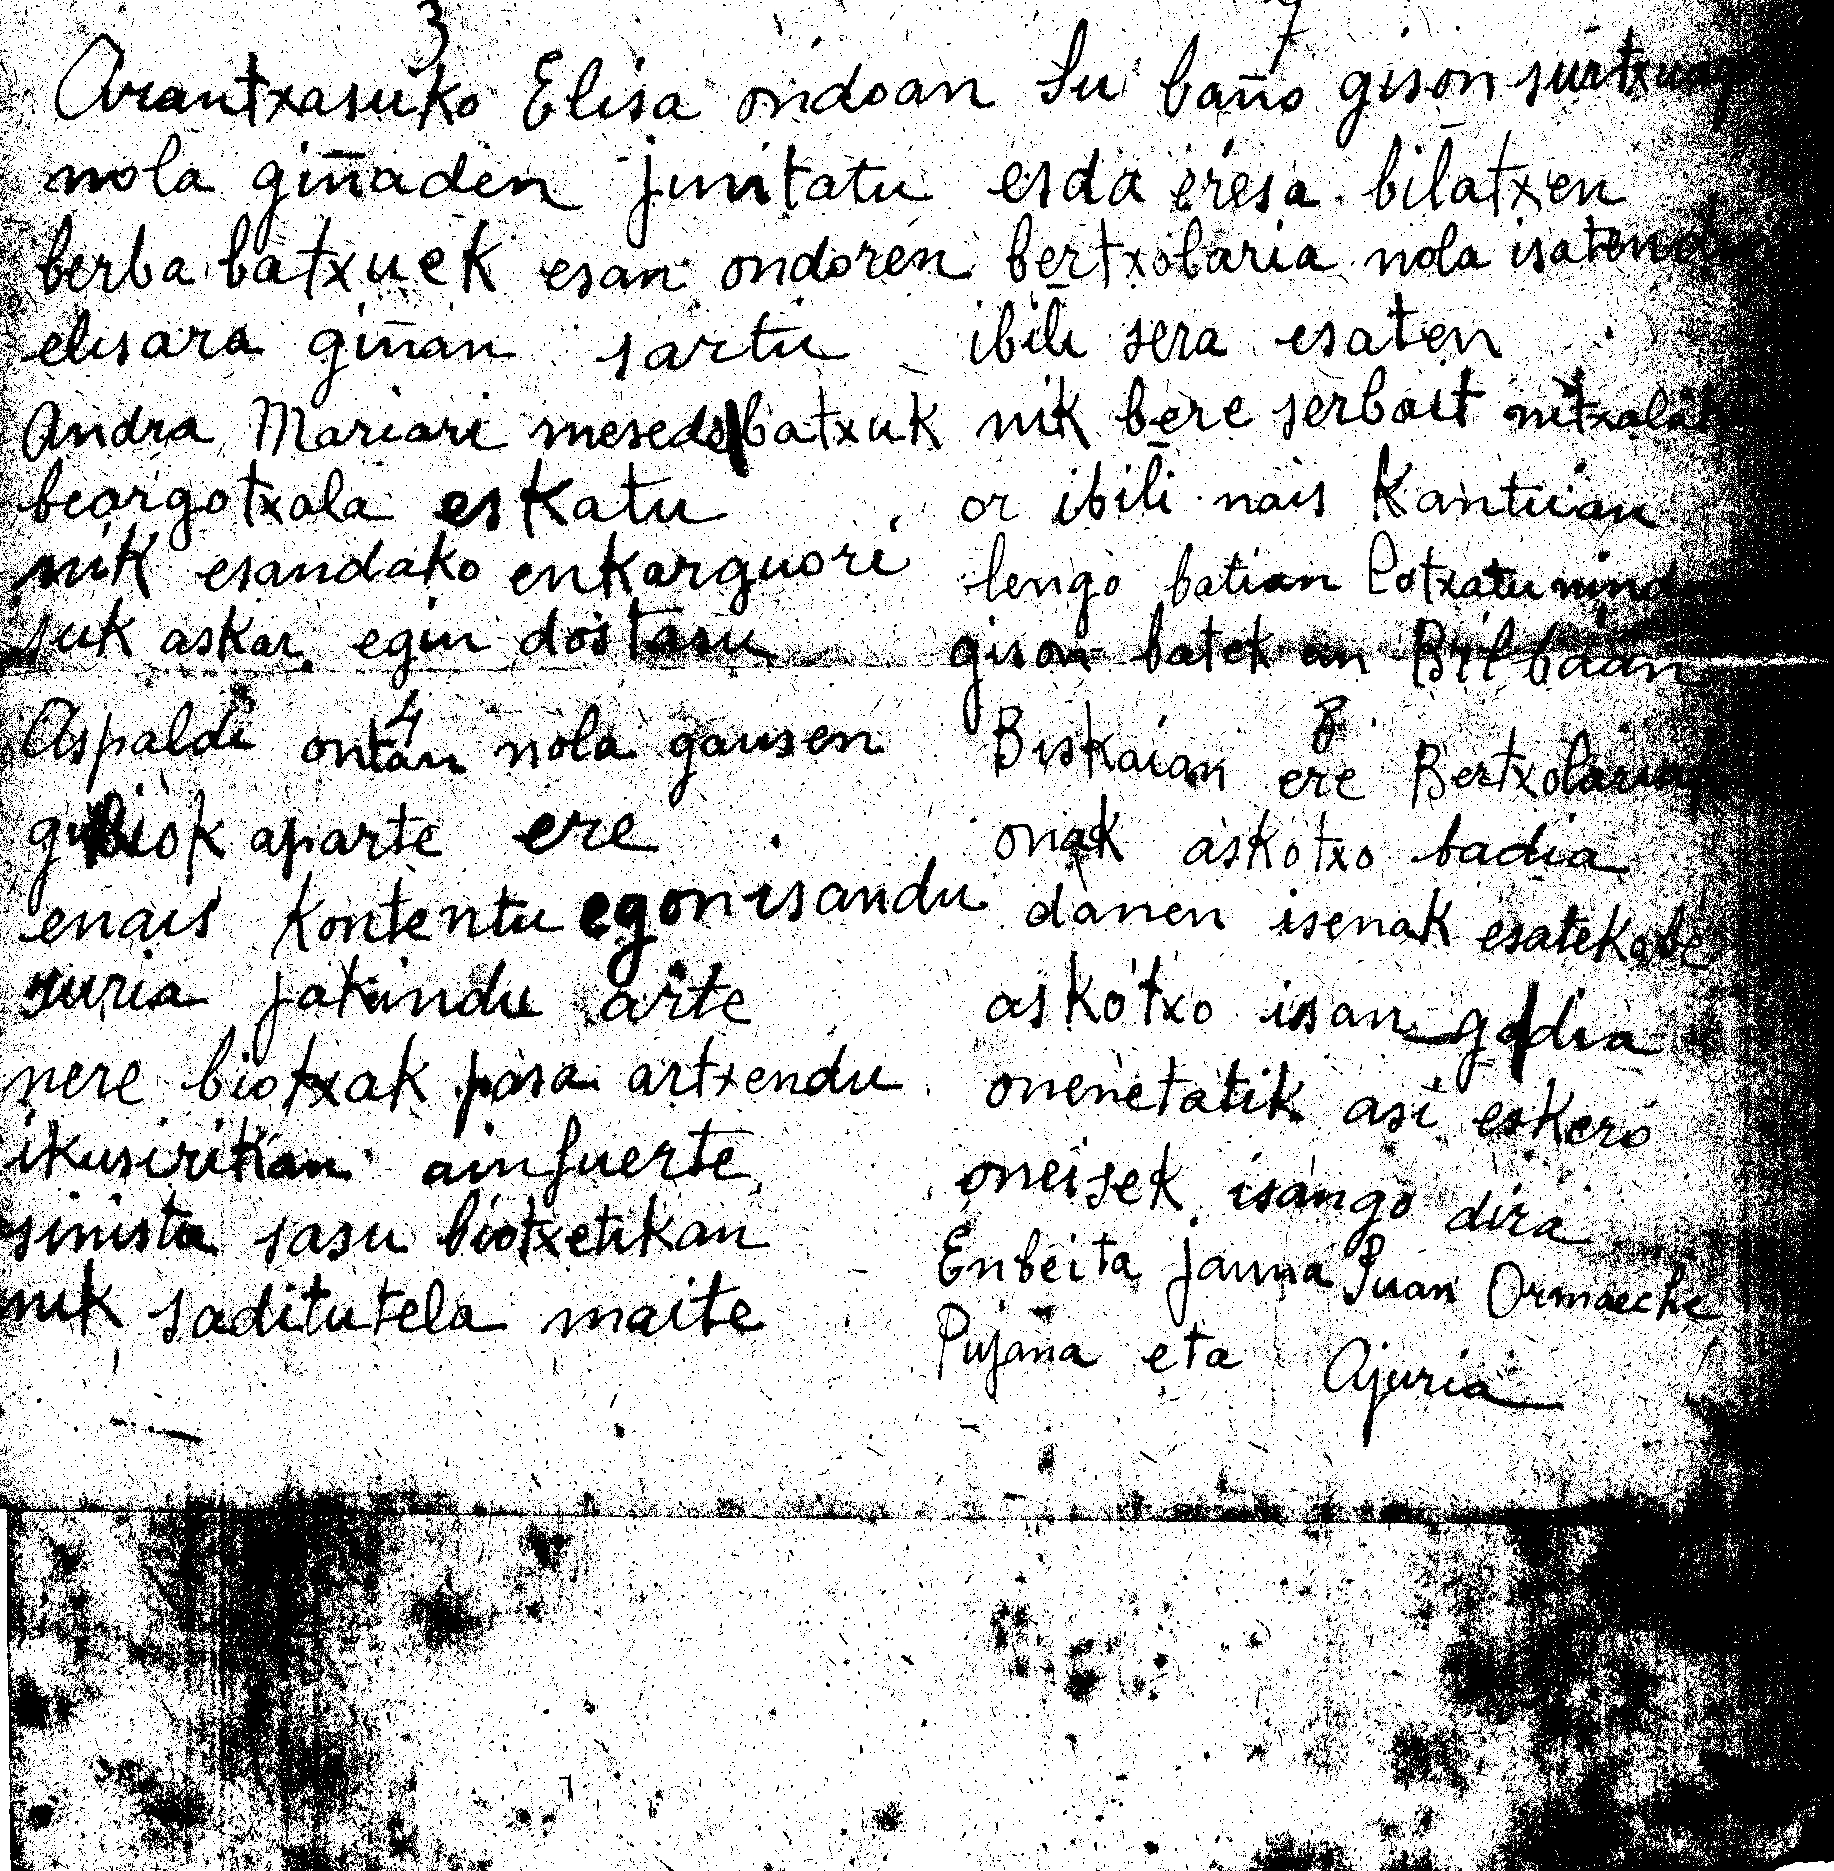 3
Arantxasuko Elisa ondoan
nola giñaden juntatu
berba batxuek esan ondoren
elisara giñan sartu
Andra Mariari mesede batxuk
beargotxala eskatu
nik esandako enkarguori
suk askar egin dostasu
4
Aspaldi ontan nola gausen
gu biok aparte ere
enais kontentu egon isandu
suria jakindu arte
nere biotxak pasa artxendu
ikusirikan ain fuerte
sinistu sasu biotxetikan
nik saditutela maite
7
Su baño gison surtxuag
esda eresa bilatxen
bertxolaria nola isatend
ibili sera esaten
nik bere serbait
or ibili nais kantuian
lengo batian Lotxatu nind
gison batek an Bilbaan
8
Biskaian ere
onak askotxo badia
danen isenak esateko be
askotxo isan
onenetatik asi eskero
oneisek isango dira
Enbeita jauna Juan Ormaeche
Pujana eta Ajuria